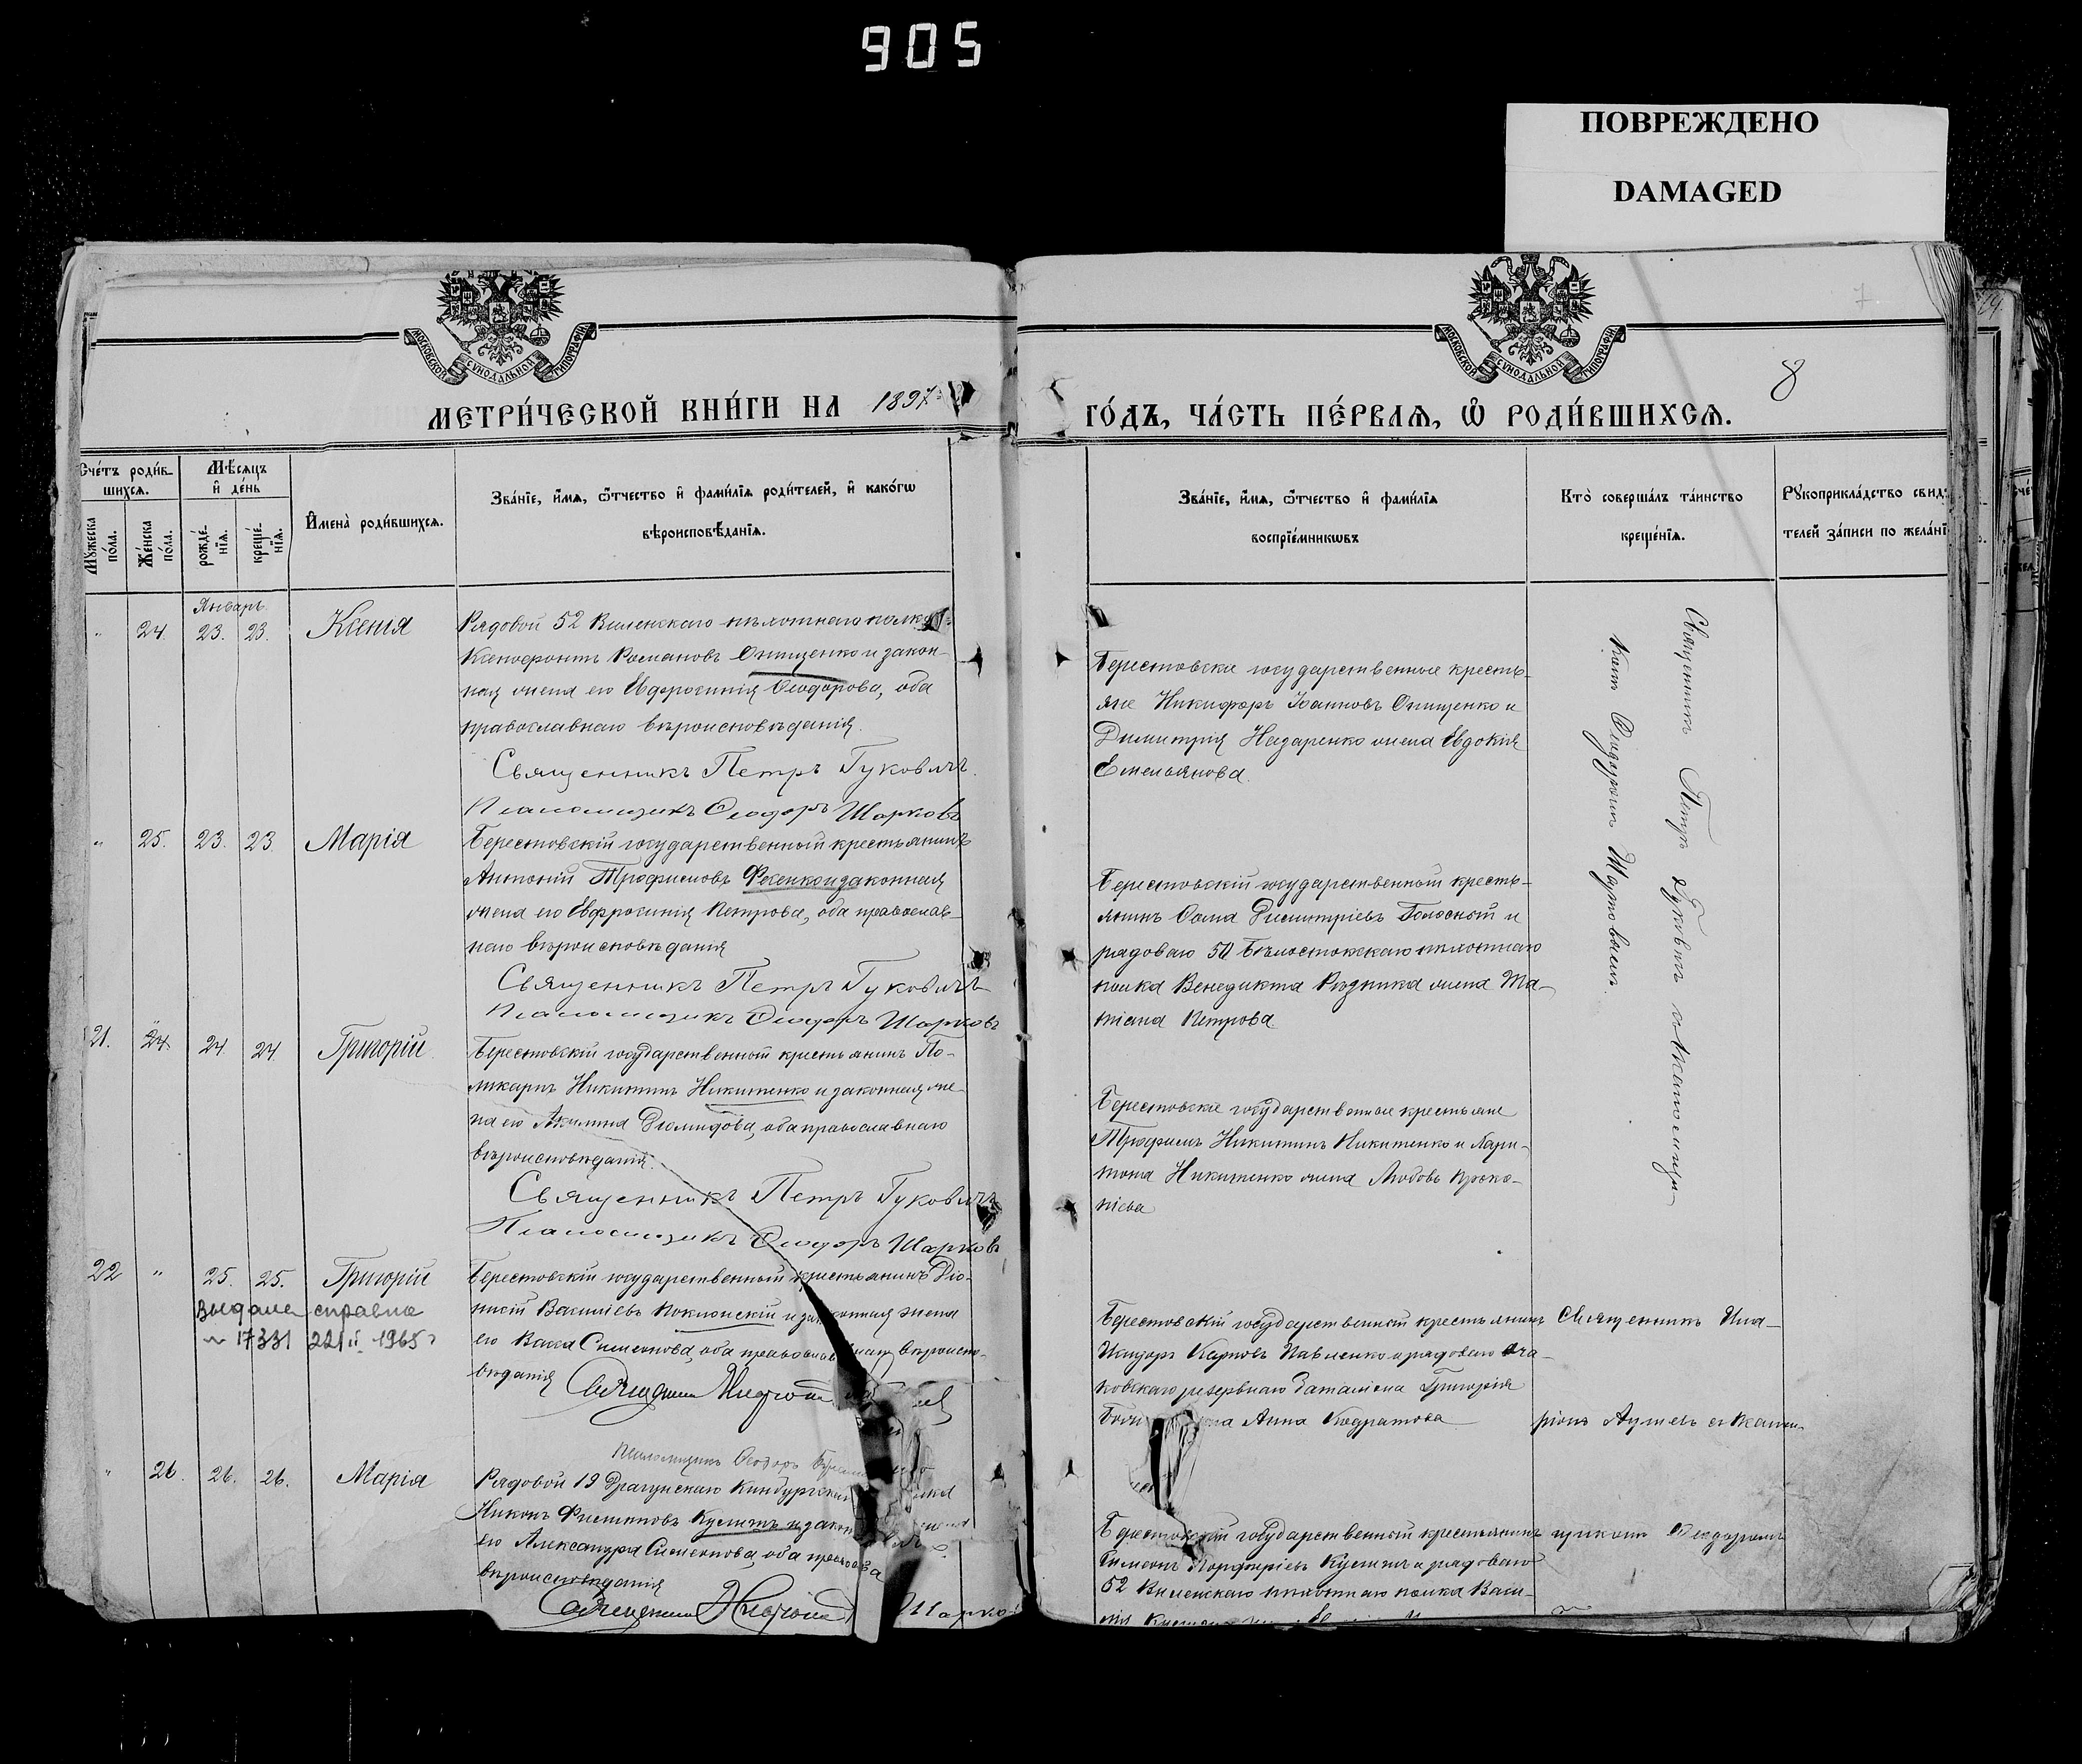 905
ПОВРЕЖДЕНО
DAMAGED
МОСКОВСКОЙ СѴНОДАЛЬНОЙ ТИПОГРАФІИ
МОСКОВСКОЙ СѴНОДАЛЬНОЙ ТИПОГРАФІИ
7
8
МЕТРИ́ЧЕСКОЙ КНИ́ГИ НА 1897
ГО́ДЪ, ЧА́СТЬ ПЕ́РВАѦ, Ѡ҆ РОДИ́ВШИХСѦ.
Сче́тъ роди́в-
шихсѧ.
Мꙋ́жеска по́ла.
Же́нска по́ла.
Мѣ́сѧцъ
и҆ де́нь
рожде́-
нїѧ.
креще́-
нїѧ.
И҆мена̀ роди́вшихсѧ.
Зва́нїе, и҆́мѧ, ѻ҆́тчество и҆ фами́лїѧ роди́телей, и҆ како́гѡ
вѣроисповѣ́данїѧ.
Зва́нїе, и҆́мѧ, ѻ҆́тчество и҆ фами́лїѧ
воспрїе́мникѡвъ
Кто̀ соверша́лъ та́инство
креще́нїѧ.
Рꙋкоприкла́дство свид
телей за́писи по жела́нї
Январь
" 24. 23. 23. Ксенія
Рядовой 52 Виленскаго пѣхотнаго полка
Ксенофонтъ Романовъ Онищенко и закон-
ная жена его Евфросинія Ѳеодорова, оба
православнаго вѣроисповѣданія.
Священникъ Петръ Гуковичъ
Псаломщикъ Ѳеодоръ Шарковъ
Берестовскіе государственные кресть-
яне Никифоръ Іоанновъ Онищенко и
Димитрія Назаренко жена Евдокія
Емельянова.
Священникъ Петръ Гуковичъ съ псаломщи-
комъ Ѳеодоромъ
" 25. 23. 23. Марія
Берестовскій государственный крестьянинъ
Антоній Трофимовъ Фесенко и законная
жена его Евфросинія Петрова, оба православ-
наго вѣроисповѣданія
Священникъ Петръ Гуковичъ
Псаломщикъ Ѳеодоръ Шарковъ
Берестовскій государственный кресть-
янинъ Ѳома Димитріевъ Голосной и
рядоваго 50 Бѣлостокскаго пѣхотнаго
полка Венедикта Рѣзника жена Та-
тіана Петрова
21. 24. 24. 24 Григорій
Берестовскій государственный крестьянинъ По-
ликарпъ Никитинъ Никитенко и законная же-
на его Акилина Діомидова, оба православнаго
вѣроисповѣданія.
Священникъ Петръ Гуковичъ
Псаломщикъ Ѳеодоръ Шарковъ
Берестовскіе государственные крестьяне
Трофимъ Никитинъ Никитенко и Хари-
тона Никитенко жена Любовь Проко-
піева
22 " 25. 25. Григорій
Выдана справка
17331 1965
Берестовскій государственный крестьянинъ Діо-
нисій Василіевъ Поклонскій и законная жена
его Васса Симеонова, оба православнаго вѣроиспо-
вѣданія
Священникъ
Псаломщикъ Ѳеодоръ
Берестовскій государственный крестьянинъ
Карповъ Павленко и рядоваго Оча-
ковскаго резервнаго баталіона Григорія
Анна Кодратова
Священникъ Ила-
ріонъ съ псалом-
" 26. 26. 26. Марія
Рядовой 19 Драгунскаго Кинбургскаго
Никонъ Филиповъ и закон
его Александра Симеонова, оба православ
вѣроисповѣданія
Священникъ
Шарко
Берестовскій государственный крестьянинъ
Симеонъ Порфиріевъ и рядоваго
52 Виленскаго пѣхотнаго полка Васи-
лія
щикомъ Ѳеодоромъ